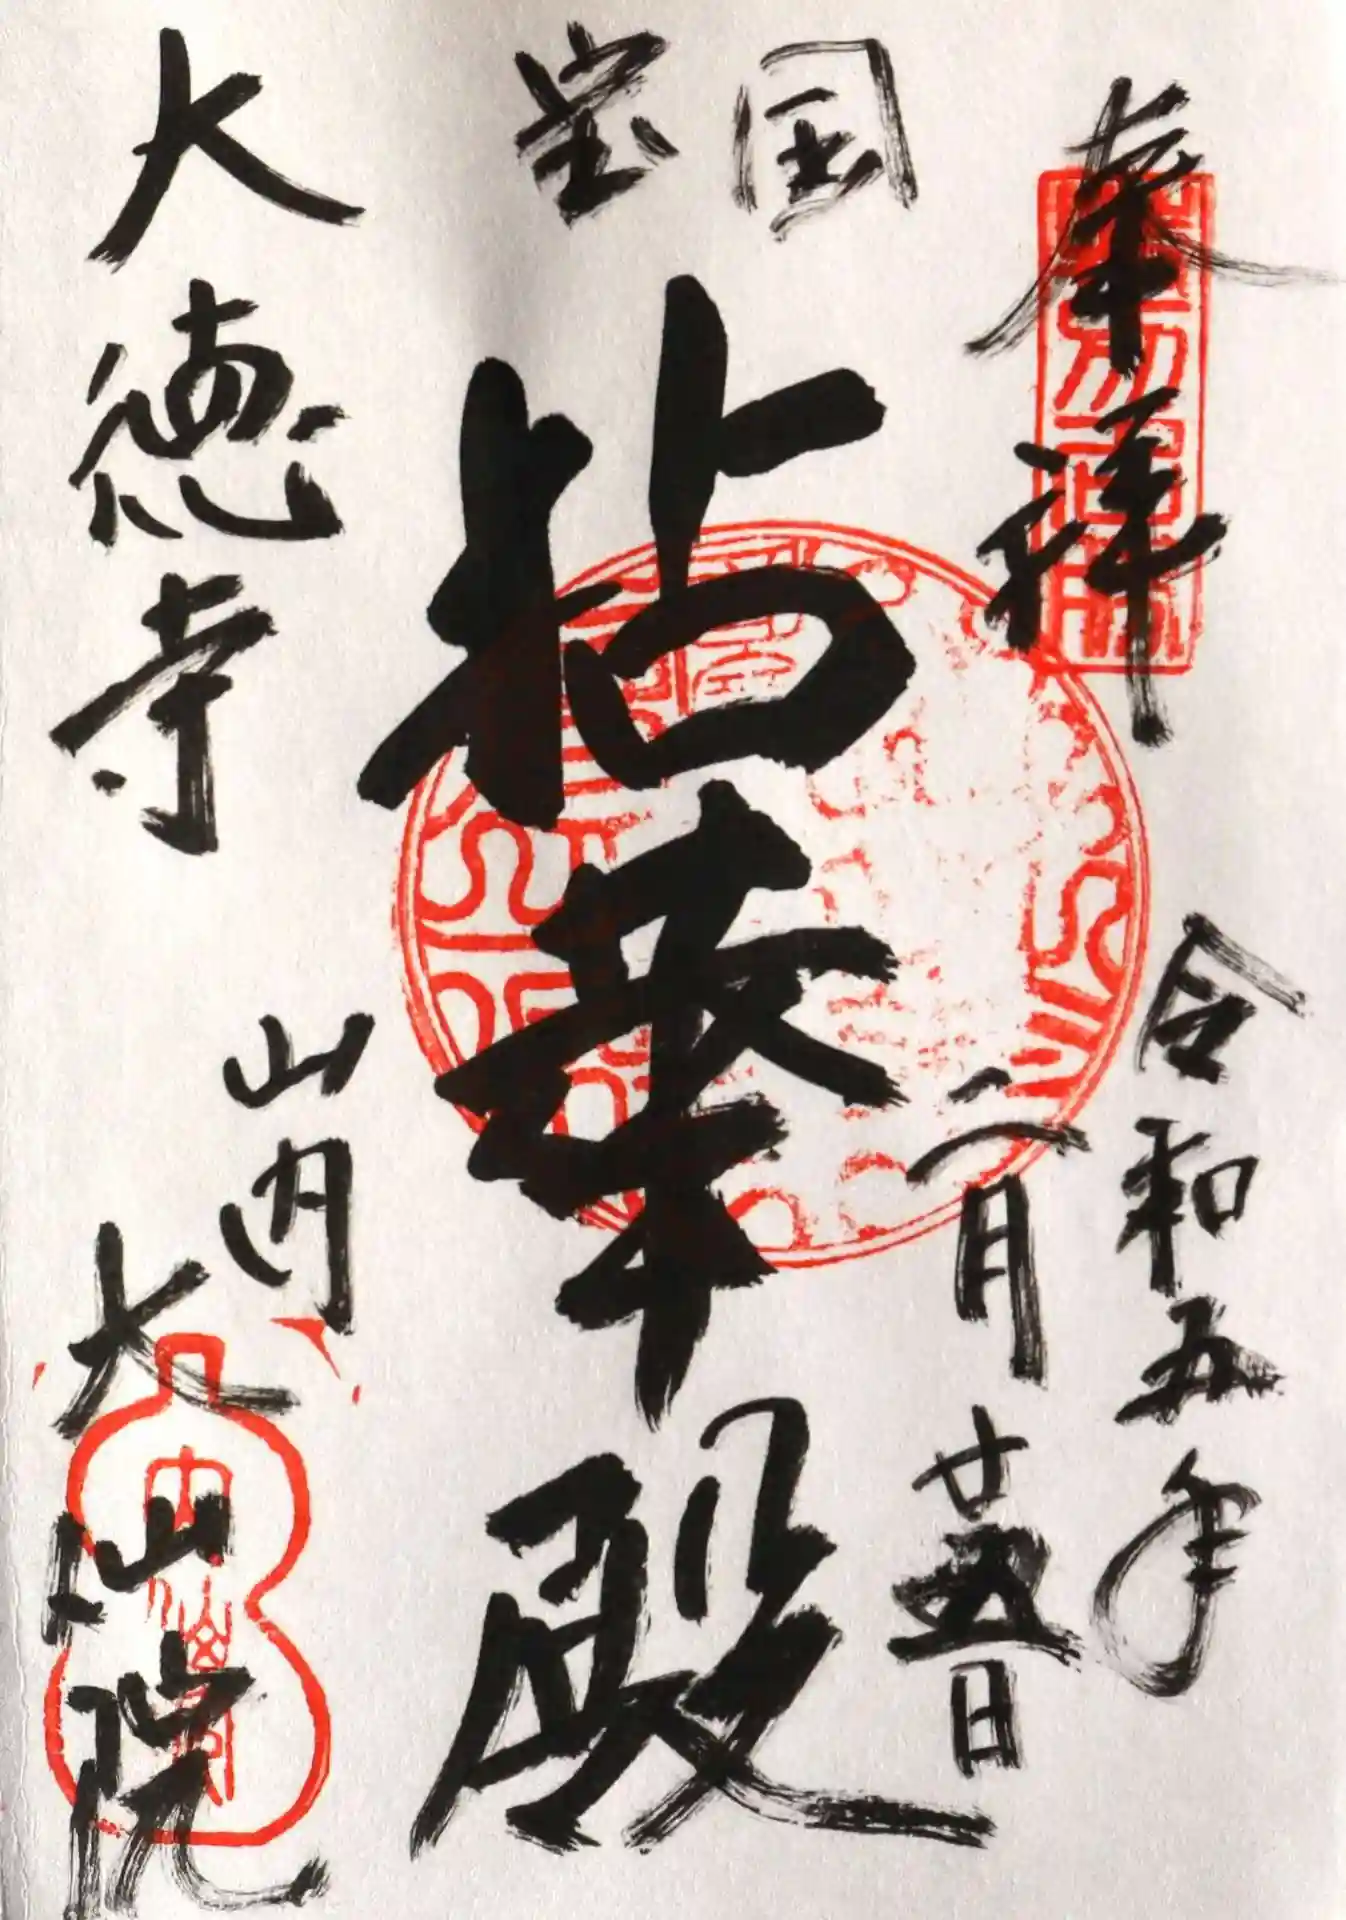 奉拝
令和五年
二月廿五日
国宝
拈華殿
大徳寺
山内
大仙院